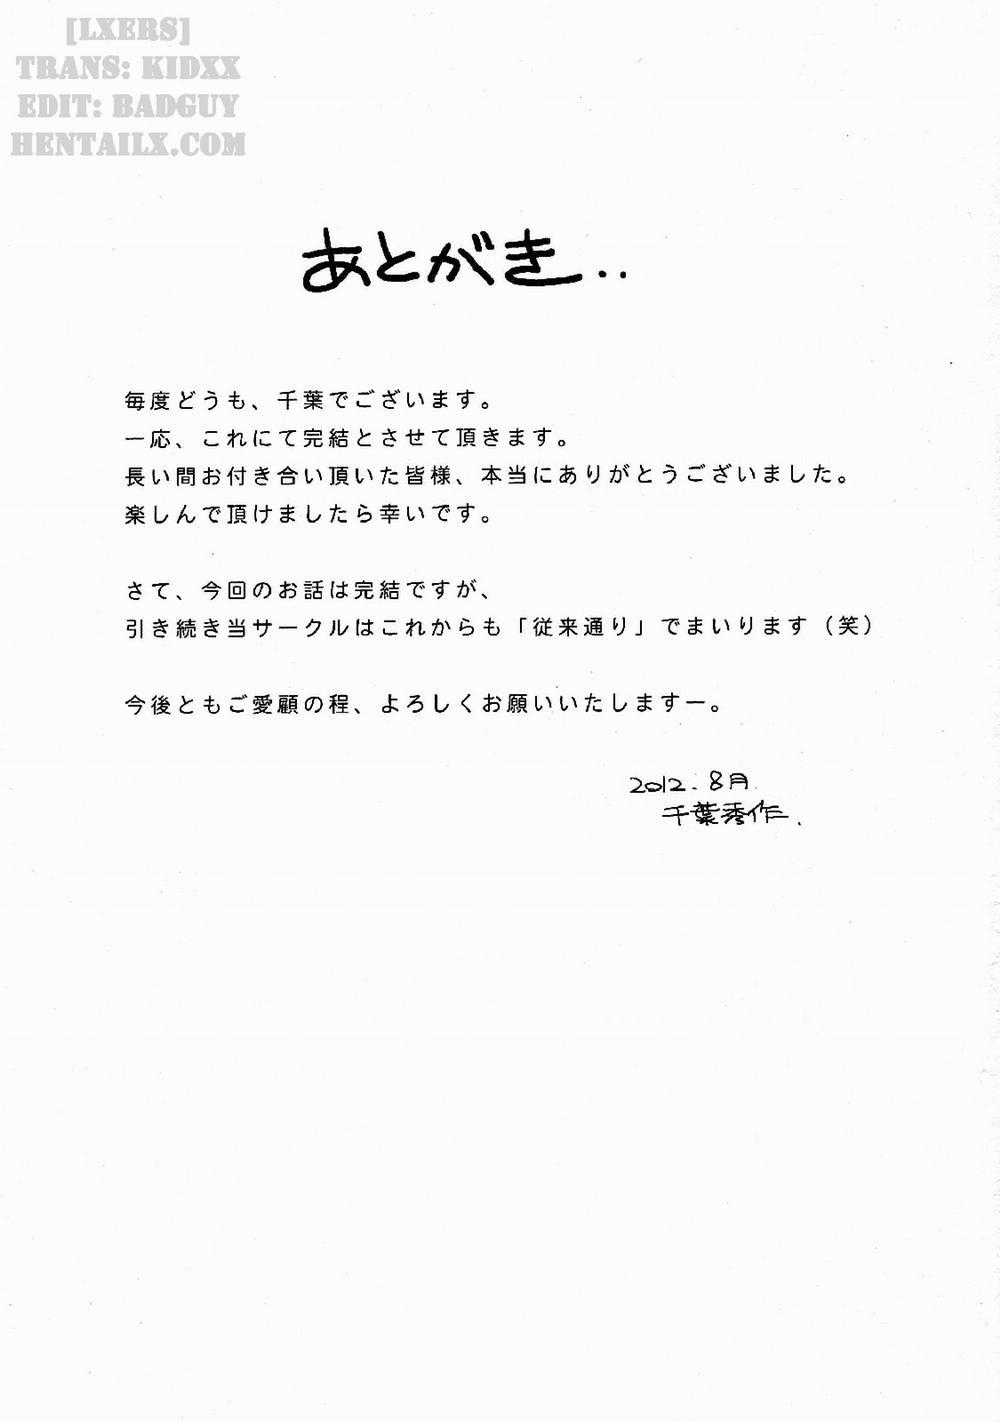 [LXERS]
TRANS: KIDXX
EDIT: BADGUY
HENTAILX.COM
あとがき..
毎度どうも、千葉でございます。
一応、これにて完結とさせて頂きます。
長い間お付き合い頂いた皆様、本当にありがとうございました。
楽しんで頂けましたら幸いです。
さて、今回のお話は完結ですが、
引き続き当サークルはこれからも「従来通り」でまいります（笑）
今後ともご愛顧の程、よろしくお願いいたしますー。
2012.8月.
千葉秀作.